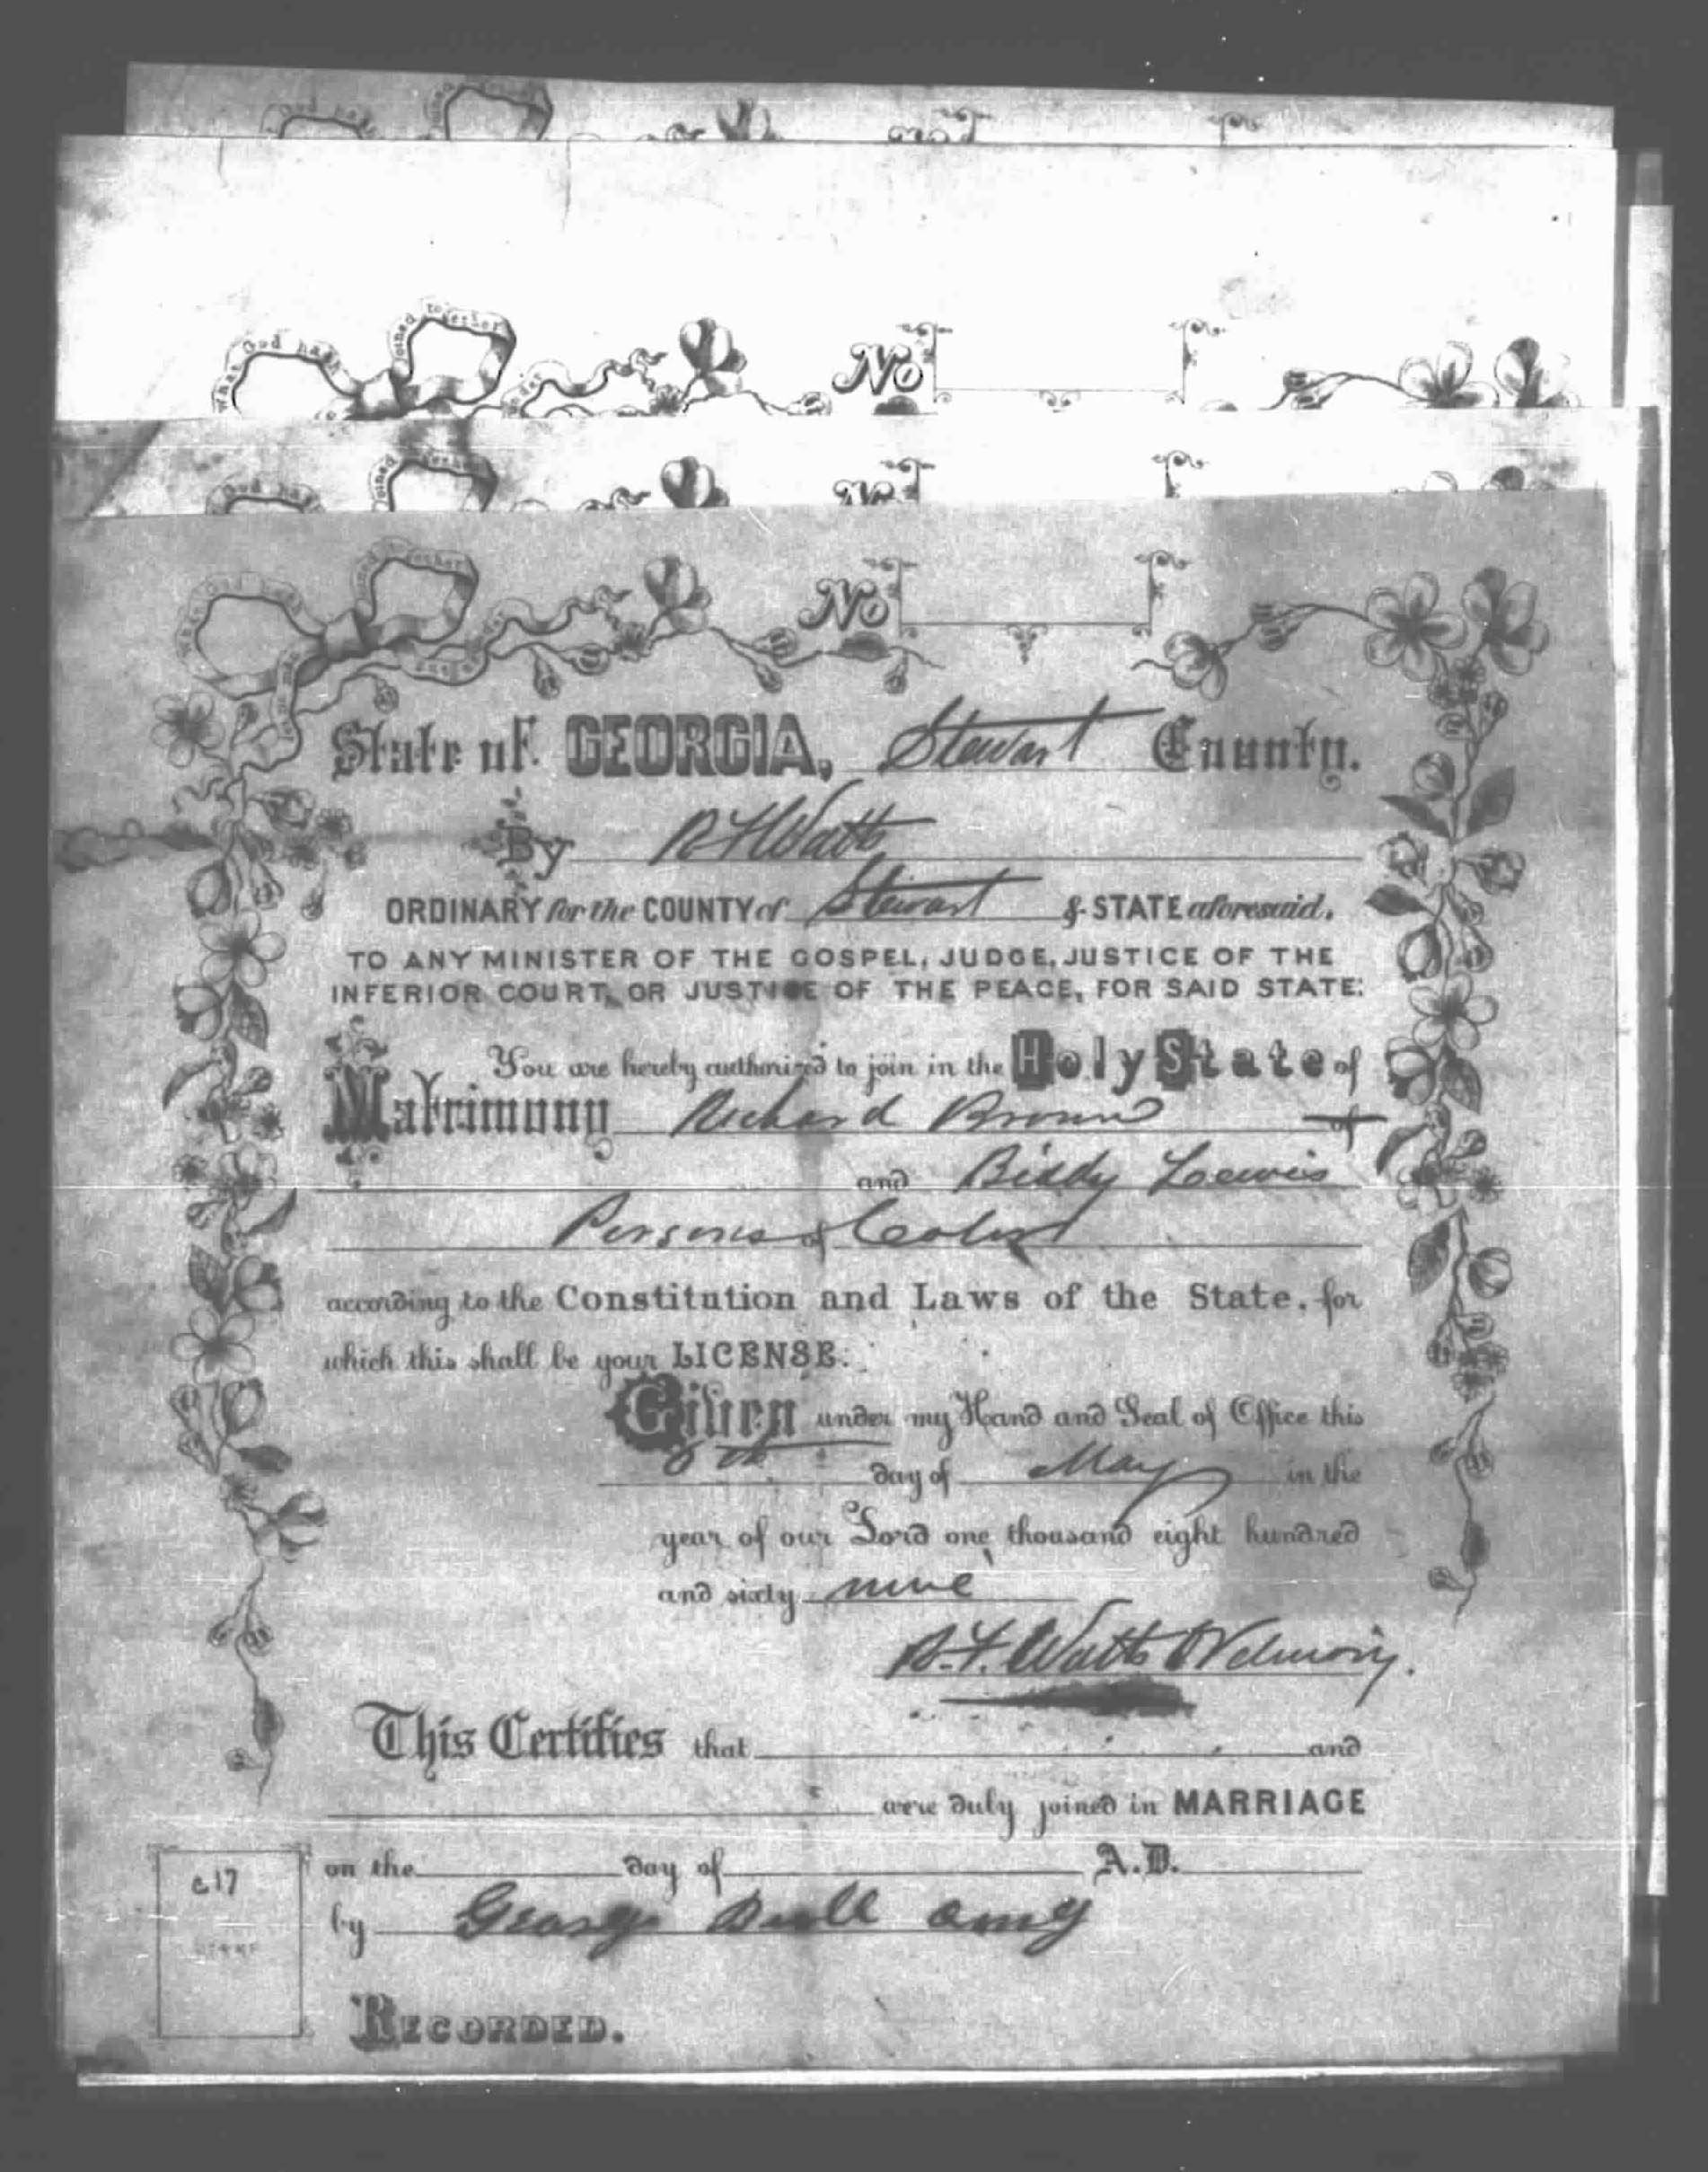 God hath joined together
What God hath joined together
No
God hath joined together
No
What God hath joined together
No
State of GEORGIA, Stewart County.
By R F Watts
ORDINARY for the COUNTY of Stewart & STATE aforesaid.
TO ANY MINISTER OF THE GOSPEL, JUDGE, JUSTICE OF THE
INFERIOR COURT, OR JUSTICE OF THE PEACE, FOR SAID STATE:
You are hereby authorized to join in the Holy State of
Matrimony Richard Brown of
and Biddy Lewis
Persons of Color
according to the Constitution and Laws of the State, for
which this shall be your LICENSE.
Given under my Hand and Seal of Office this
8th day of May in the
year of our Lord one thousand eight hundred
and sixty nine
R. F. Watts Ordinary.
This Certifies that and
were duly joined in MARRIAGE
on the day of A.D.
c17
by George
RECORDED.